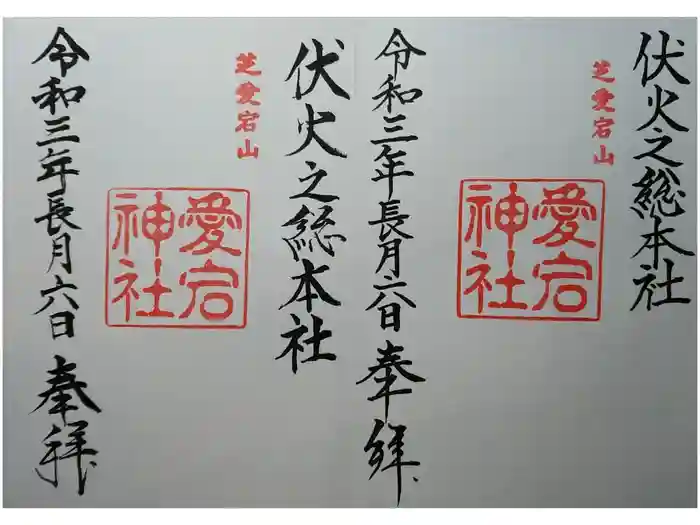 伏火之総本社
芝愛宕山
愛宕
神社
令和三年長月六日 奉拝
伏火之総本社
芝愛宕山
愛宕
神社
令和三年長月六日 奉拝